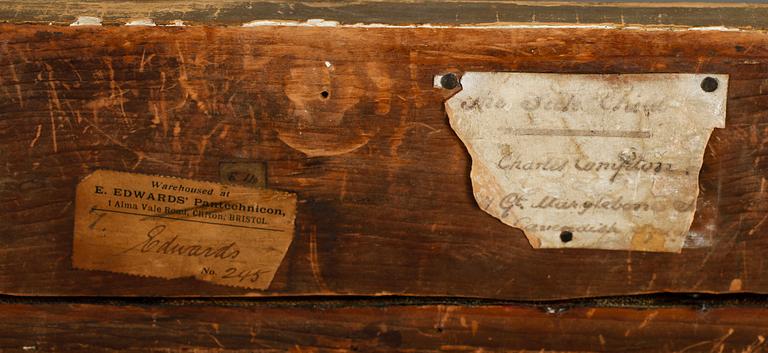 Warehoused at
E. EDWARDS' Pantechnicon,
1 Alma Vale Road, Clifton, BRISTOL
Edwards
No. 245
Charles Compton.
Gt. Marylebone
Cavendish